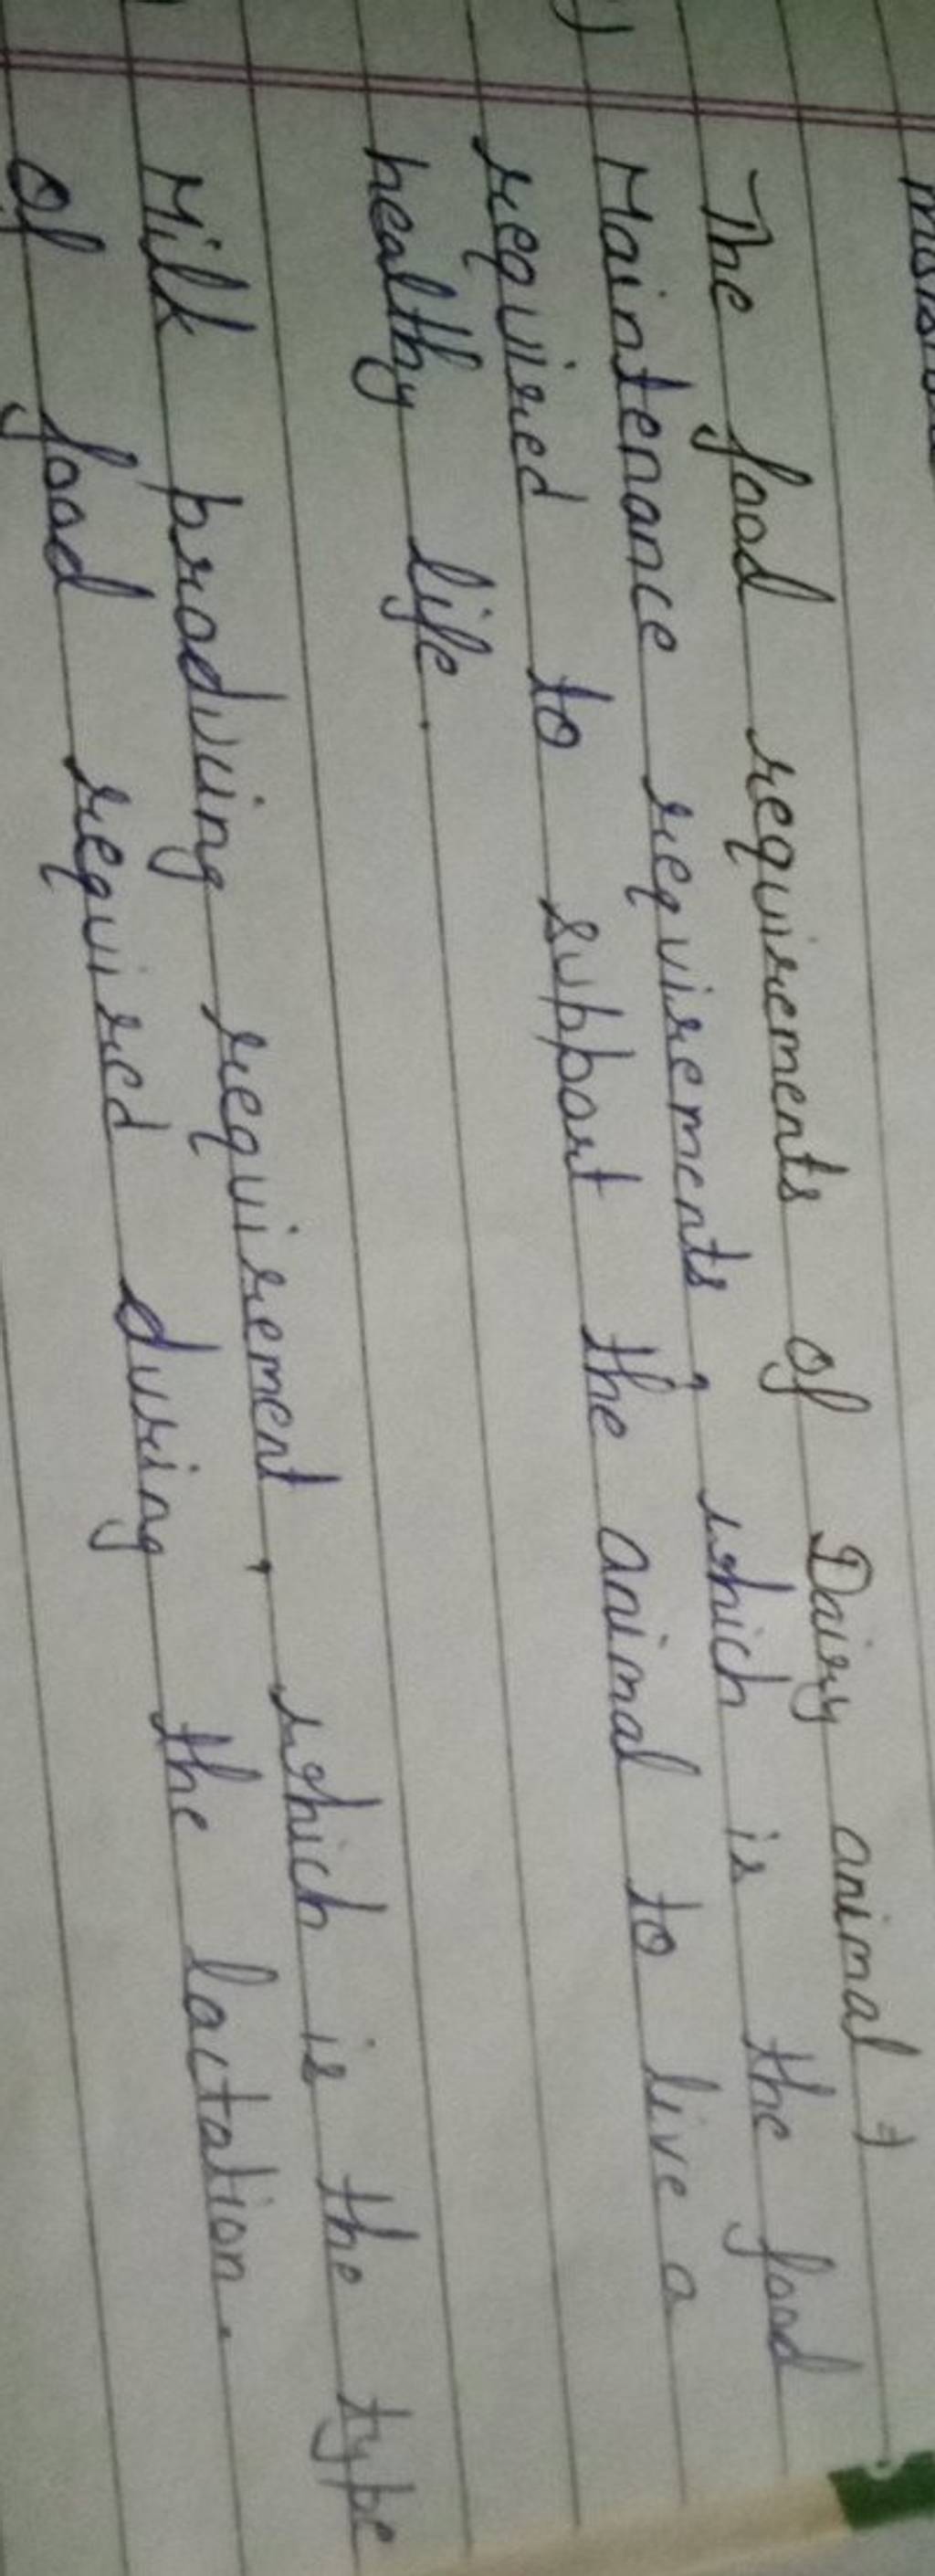 The food requirements of Dairy animal ⇒
) Maintenance requirements, which is the food
required to support the animal to live a
healthy life.
Milk produing requirement, which is the type
of food required during the lactation.